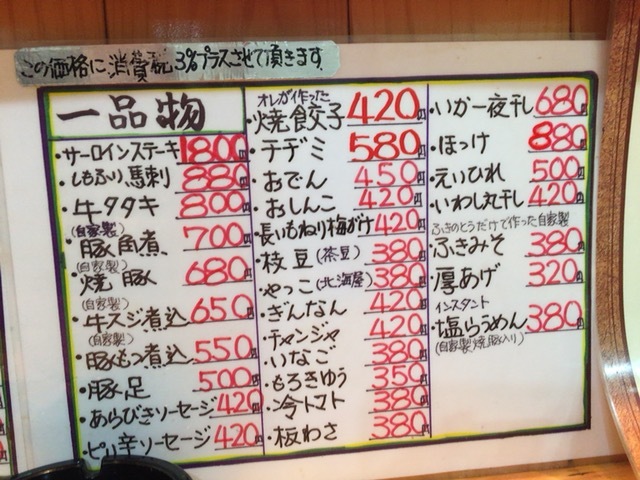 この価格に消費税3%プラスさせて頂きます
一品物
・サーロインステーキ 1800円
・しもふり馬刺 880円
・牛タタキ 800円
(自家製)
・豚角煮 700円
(自家製)
・焼豚 680円
(自家製)
・牛スジ煮込 650円
(自家製)
・豚もつ煮込 550円
・豚足 500円
・あらびきソーセージ 420円
・ピリ辛ソーセージ 420円
オレが作った
・焼餃子 420円
・チヂミ 580円
・おでん 450円
・おしんこ 420円
・長いもねり梅あげ 420円
・枝豆(茶豆) 380円
・やっこ(北海屋) 380円
・ぎんなん 420円
・チャンジャ 420円
・いなご 380円
・もろきゆう 350円
・冷トマト 380円
・板わさ 380円
・いか一夜干し 680円
・ほっけ 880円
・えいひれ 500円
・いわし丸干し 420円
ふきのとうだけで作った自家製
・ふきみそ 380円
・厚あげ 320円
インスタント
・塩らうめん 380円
(自家製焼豚入り)